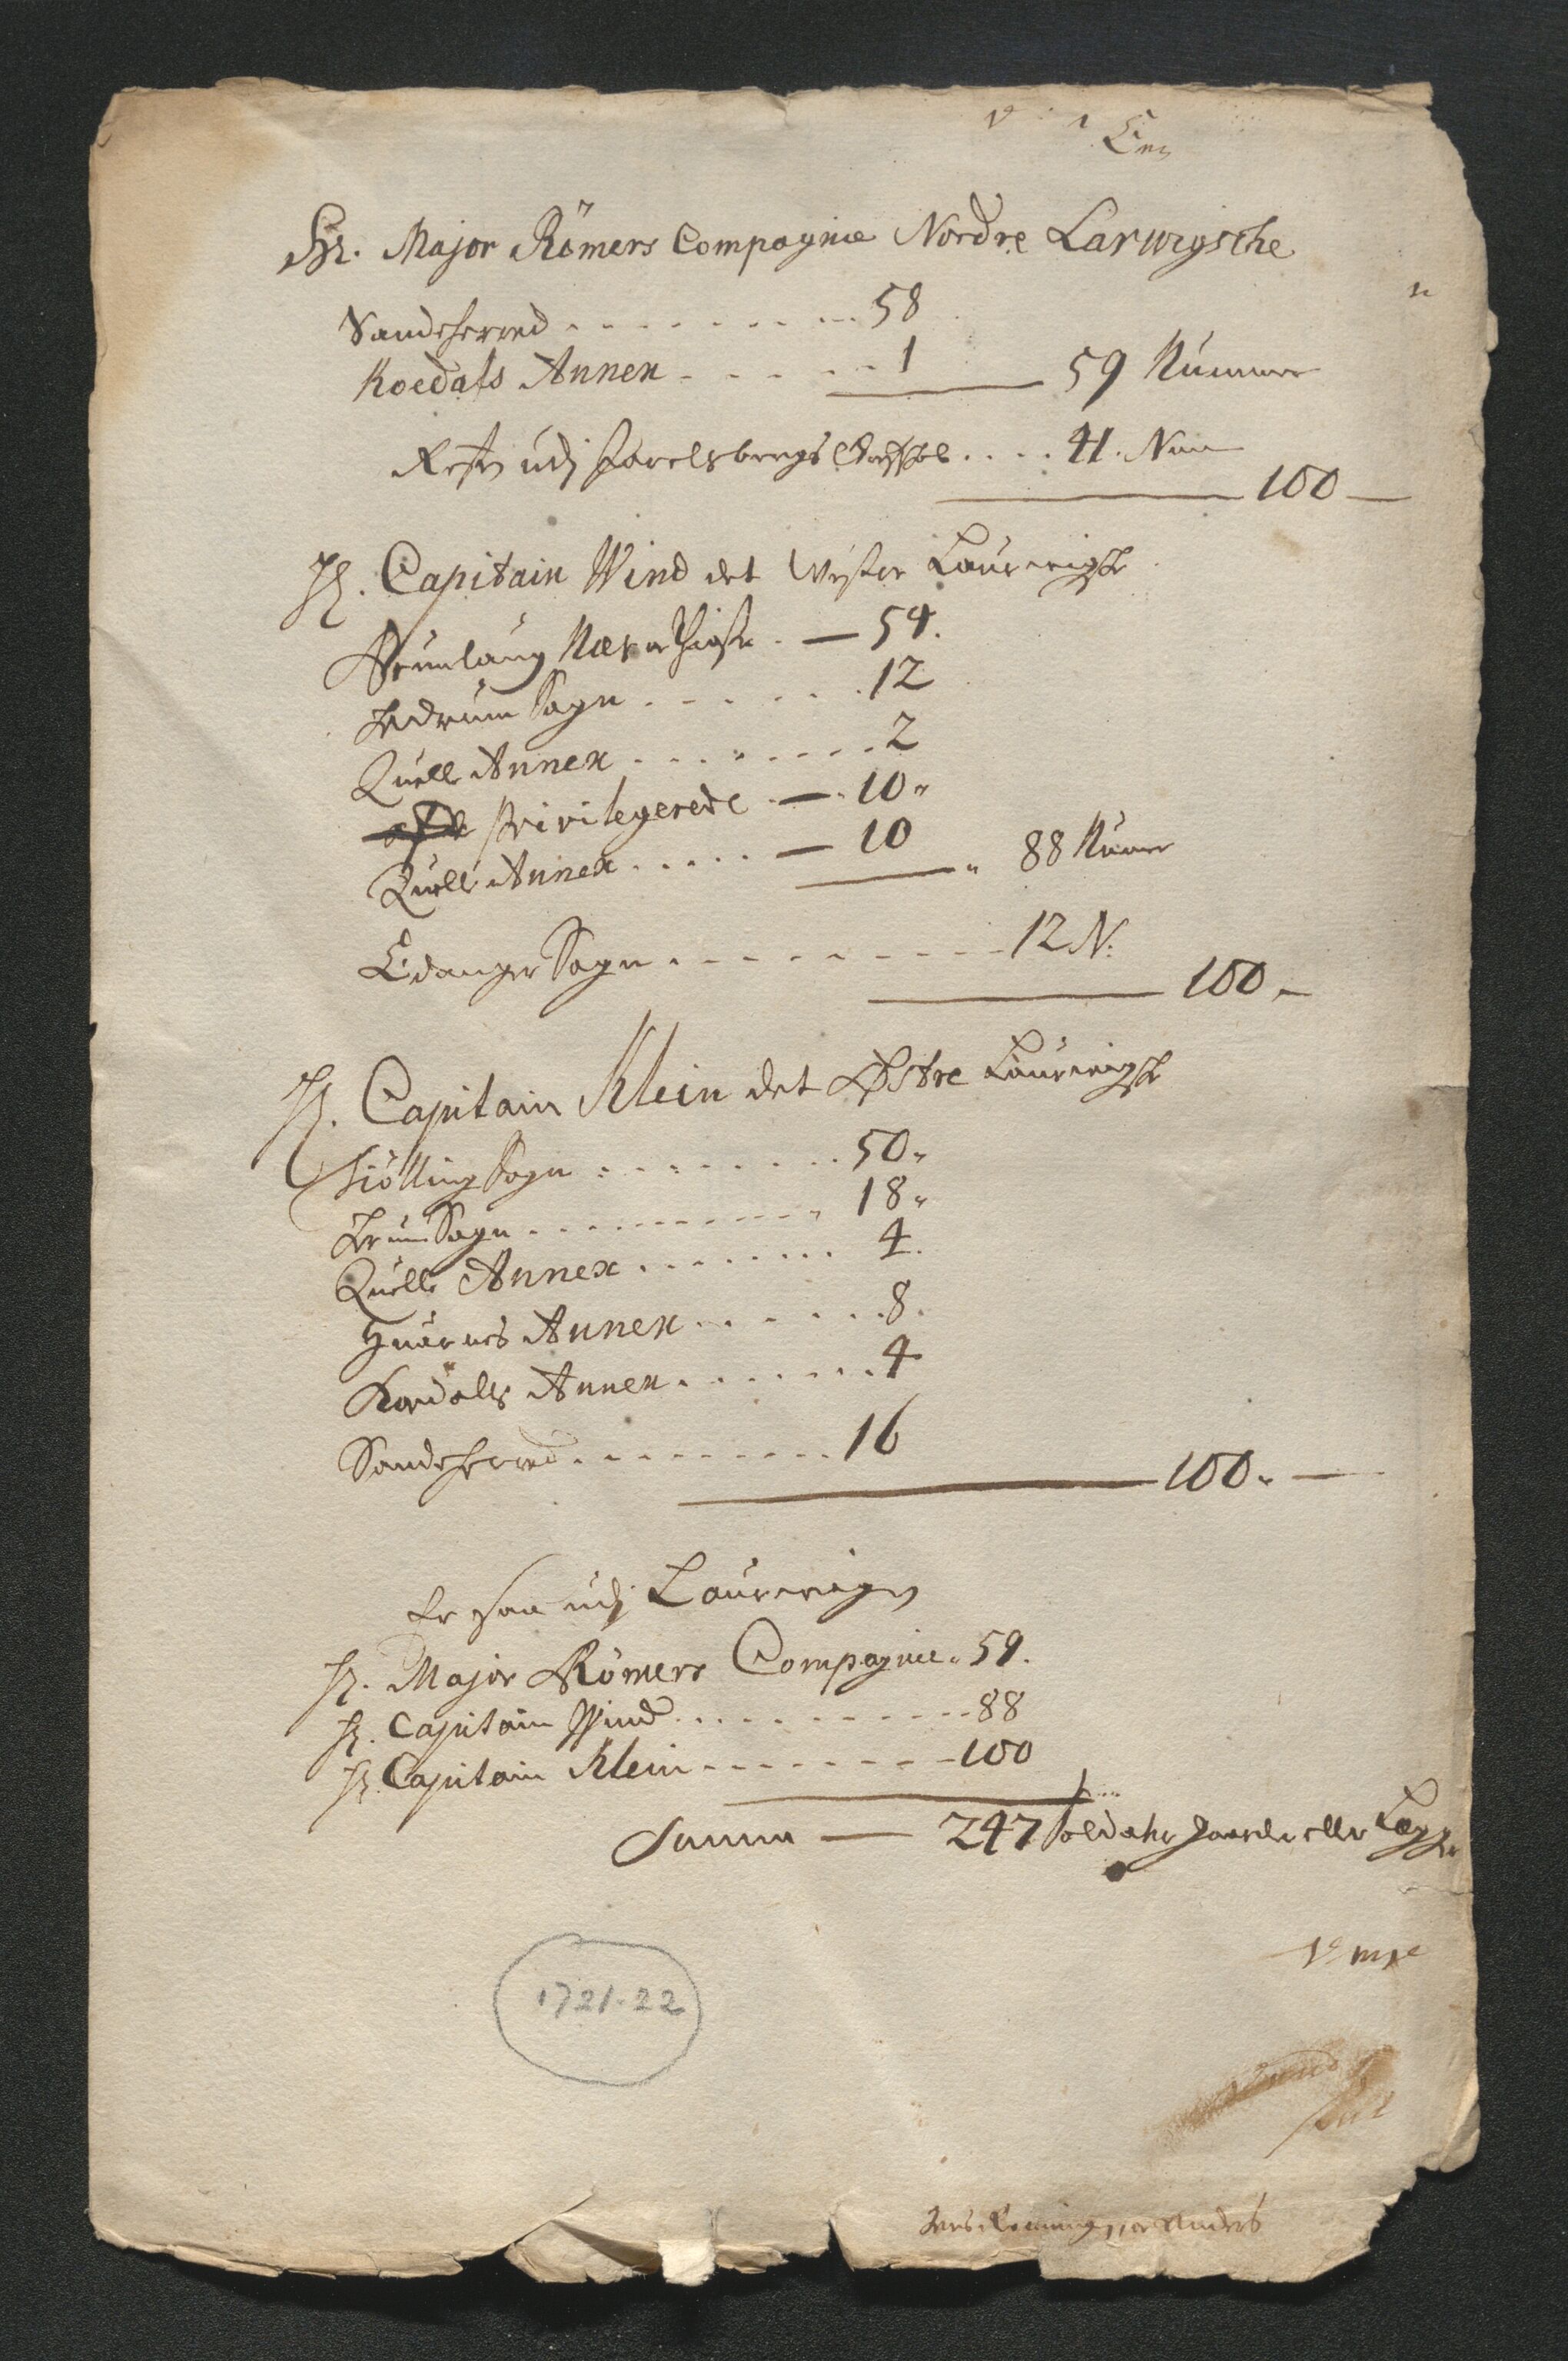 Hr. Major Römers Compagnie Nordre Larwigsche
Sandeherred . . . . . . . . . 58
Koedals Annex . . . . . . 1
59 Numer
Resten udj Jarelsbergs Grefskab . . . . 41. Num
100
Hr. Capitain Wind det Wester Laurvigske
Brunlaug Næs 54.
Hedrum Sogn . . . . . . . 12
Quelle Annex . . . . . . . . 2
Privilegerede 10
Quelle Annex . . . . . 10
88 Numer
Eidanger Sogn . . . . . . . . . 12 N.
100
Hr. Capitain Klein det Østre Laurvigske
Tiölling Sogn . . . . . . . . 50
Hedrum Sogn . . . . . . . . . . 18
Quelle Annex . . . . . . . . 4.
Hvarnes Annex . . . . . . . 8.
Kordals Annex . . . . . . . 4
Sandeherred . . . . . . . . . 16
100
Er saa udj Laurvigen
Hr. Major Römers Compagnie 59.
Hr. Capitain Wind . . . . . . . . . . 88
Hr. Capitain Klein . . . . . . . . 100
Summa — 247 Soldater Gaarder eller Lægger
1721-22